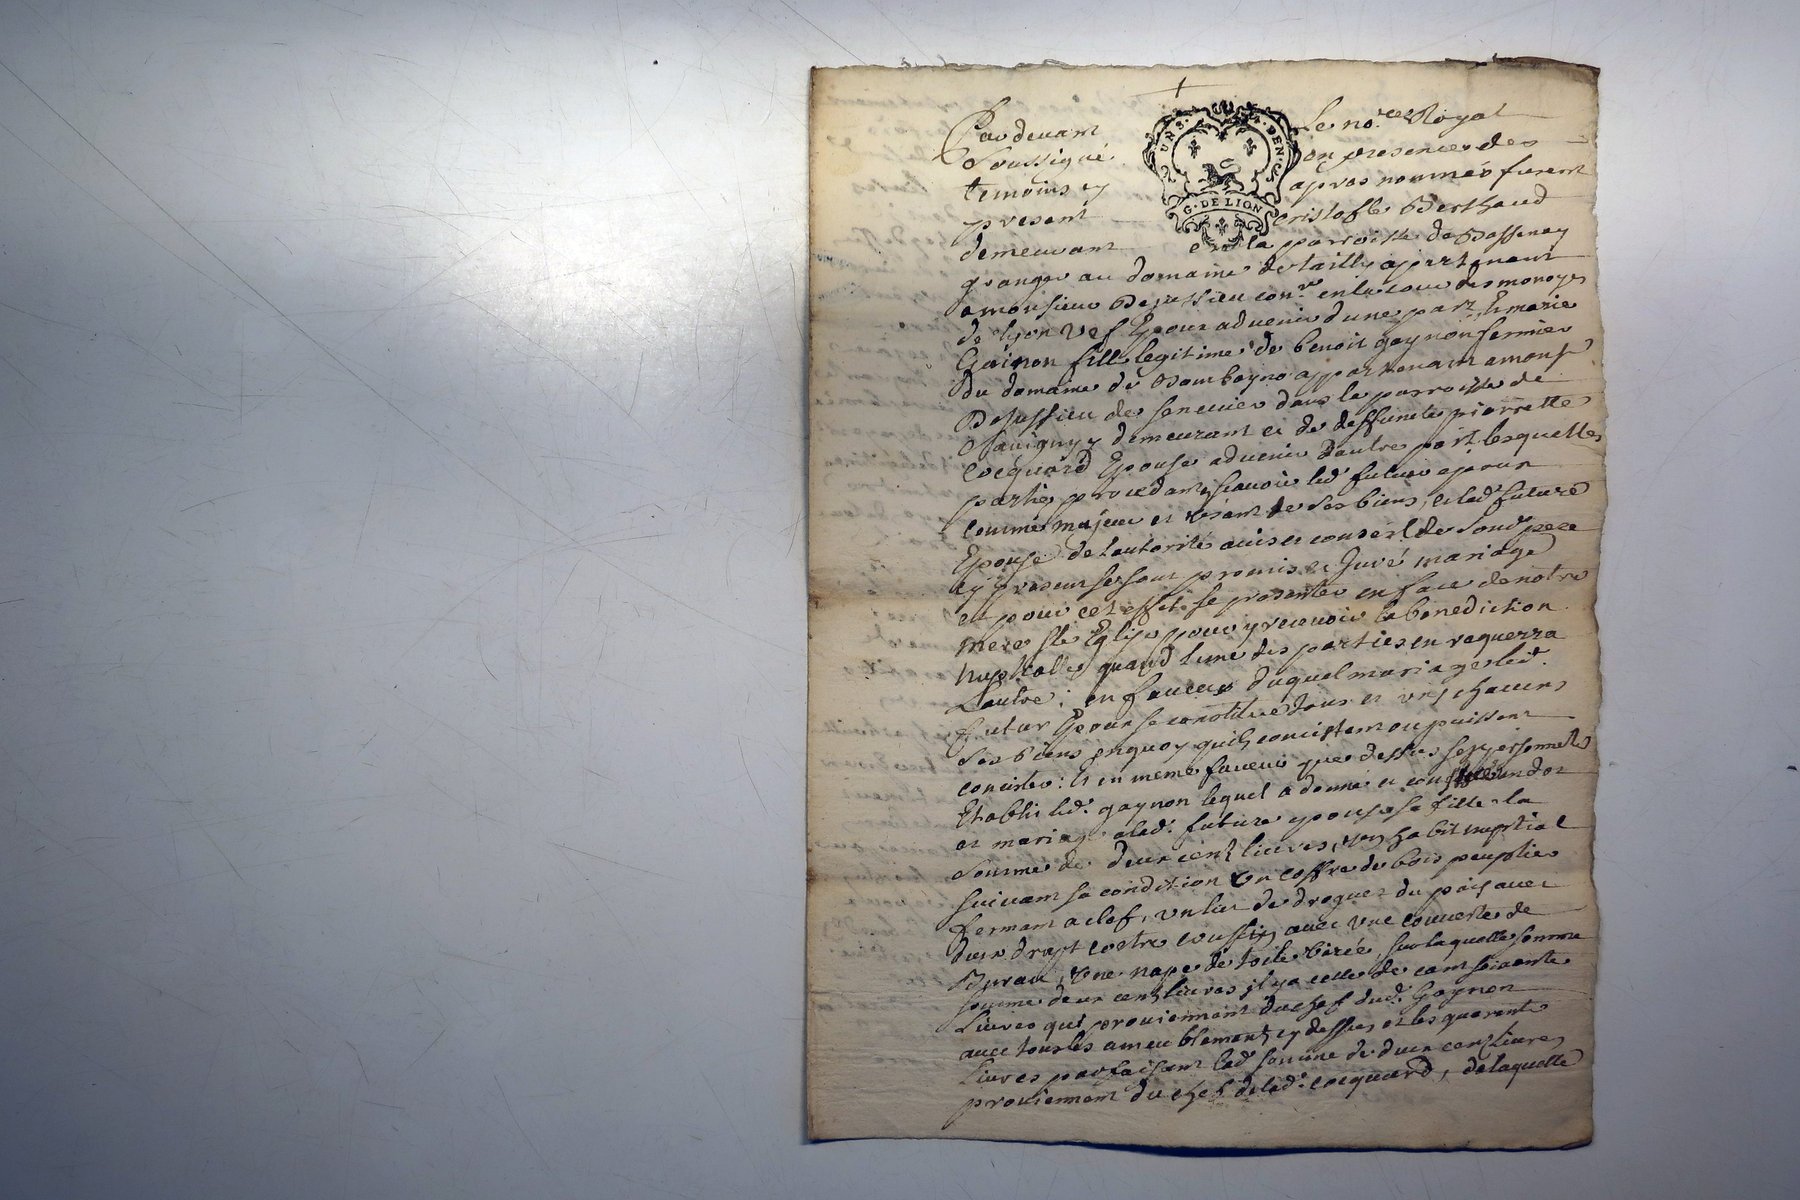 Pardevant Le no.re Royal
Soussigné en presence des
temoins cy apres nommés furent
present cristofle Berthaud
demeurant en la parroisse de Bassenay
granger au domaine de tailly appartenant
a monsieur Dejussieu con.er en la cour des monoyes
de lyon Vef Epoux advenir d'une part, Et marie
Gainon fille legitime de benoit gaynon fermier
du domaine de appartenant a mons.r
Dejussieu de senevier dans la parroisse de
Savigny y demeurant et de deffuncte pierrette
Cocquard Epouse advenir d'autre part lesquelles
parties procedant scavoir led. futur epoux
comme majeur et usant de ses biens, et lad. future
Epouse de l'autorité avis et conseil de sond. pere
cy present se sont promis et Juré mariage
et pour cet effet se presenter en face de notre
mere S.te Eglise pour y recevoir la benediction
nuptialle quand l'une des parties en requerra
Lautre; en faveur duquel mariage led.
futur Epoux se constitue tous et uns chacuns
ses biens en quoy quils consistent ou puissent
consister: Et en meme faveur que dessus sest personnellem.t
Etabli led. gaynon lequel a donné et constitué en dot
et mariage a lad. future epouse sa fille la
somme de deux cent livres, un habit nuptial
suivant sa condition un coffre de bois peuplier
fermant a clef, un lit de droguet du pais avec
deux drapt coetre coussin avec une couverte de
Bureau, une nape de toile Barée, sur laquelle somme
somme deux cent livres il y a celle de cent soixante
Livres qui proviennent du chef dud. Gaynon
avec tous les ameublements cy dessus et les quarente
Livres parfaisant lad. somme de deux cent livres
proviennent du chef de lad. cocquard, de laquelle
G. DE LION